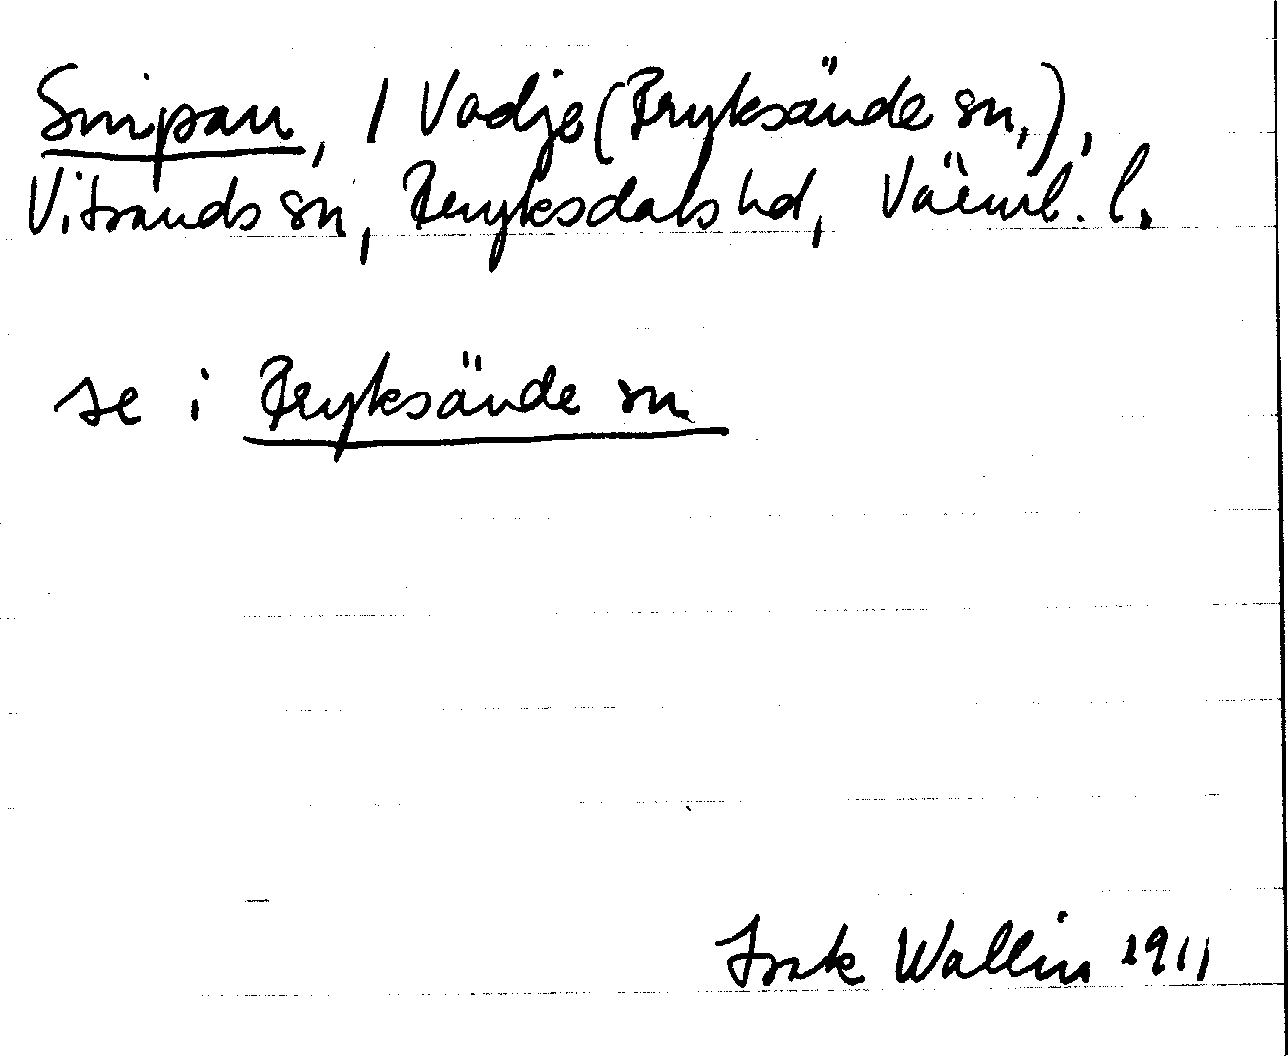 Snipan, / Vadje (Fryksände sn,),
Vitsands sn, Fryksdals hd, Värml. l.
se i Fryksände sn
Isak Wallin 1911